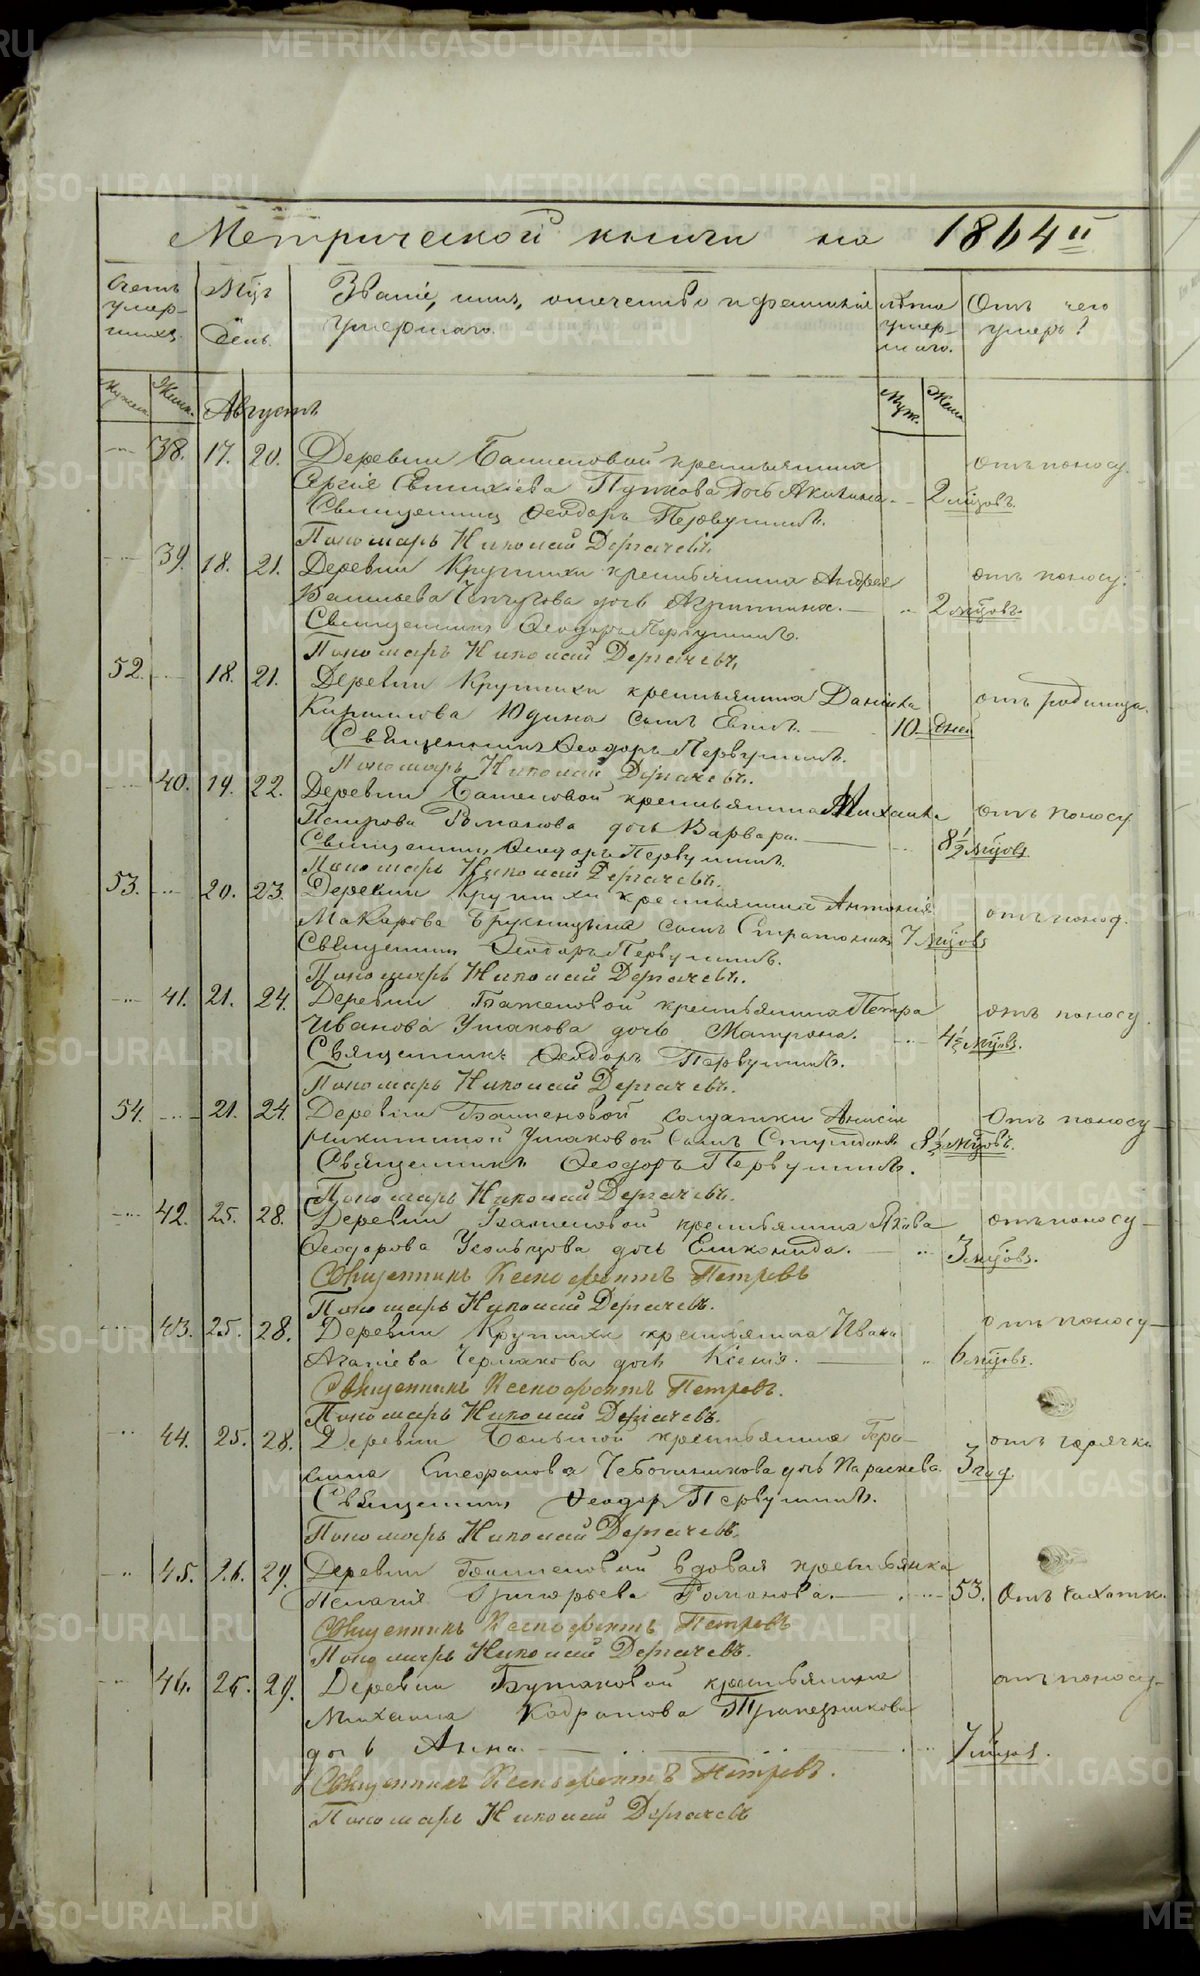 Метрической книги на 1864й
Счетъ умер- шихъ. Мѣсяцъ День. Званіе, имя, отечество и фамилія умершаго. Лѣта умер- шаго. Отъ чего умеръ?
Мужеск. Женск. Августъ Муж. Жен.
38. 17. 20. Деревни Баженовой крестьянина отъ поносу.
Сергія Евтихіева Пупкова дочь Акилина. 2 мѣсяцовъ.
Священникъ Ѳеодоръ Первушинъ.
Пономарь Николай Дергачевъ.
39. 18. 21. Деревни Крутихи крестьянина Андрея отъ поносу.
Васильева Чепчугова дочь Агриппина. 2 мѣсяцовъ.
Священникъ Ѳеодоръ Первушинъ.
Пономарь Николай Дергачевъ.
52. 18. 21. Деревни Крутихи крестьянина Даніила отъ родимца.
Кирилова Юдина сынъ Евпл. 10 дней
Священникъ Ѳеодоръ Первушинъ.
Пономарь Николай Дергачевъ.
40. 19. 22. Деревни Баженовой крестьянина Михаила отъ поносу
Петрова Романова дочь Варвара. 8 1/2 мѣсяцовъ.
Священникъ Ѳеодоръ Первушинъ.
Пономарь Николай Дергачевъ.
53. 20. 23. Деревни Крутихи крестьянина Антонія отъ понос.
Макарова Брукницына сынъ Стратоникъ 7 мѣсяцовъ
Священникъ Ѳеодоръ Первушинъ.
Пономарь Николай Дергачевъ.
41. 21. 24. Деревни Баженовой крестьянина Петра отъ поносу.
Иванова Ушакова дочь Матрона. 4 1/2 мѣсяцовъ.
Священникъ Ѳеодоръ Первушинъ.
Пономарь Николай Дергачевъ.
54. 21. 24 Деревни Баженовой солдатки Анисіи Отъ поносу
Никитиной Ушаковой сынъ Спиридонъ 8 1/2 мѣсяцовъ.
Священникъ Ѳеодоръ Первушинъ.
Пономарь Николай Дергачевъ.
42. 25. 28. Деревни Баженовой крестьянина Якова отъ поносу
Ѳеодорова Усольцова дочь Еликонида. 3 мѣсяцовъ.
Священникъ Ксенофонтъ Петровъ
Пономарь Николай Дергачевъ.
43. 25. 28. Деревни Крутихи крестьянина Ивана отъ поносу
Агапіева Чермакова дочь Ксенія. 6 мѣсяцовъ.
Священникъ Ксенофонтъ Петровъ.
Пономарь Николай Дергачевъ.
44. 25. 28. Деревни крестьянина Гера- отъ горячки
сима Стефанова дочь Параскева. 3 год.
Священникъ Ѳеодоръ Первушинъ.
Пономарь Николай Дергачевъ.
45. 26. 29. Деревни Баженовой вдовая крестьянка
Пелагія Григорьева Романова. 53. Отъ чахотки.
Священникъ Ксенофонтъ Петровъ
Пономарь Николай Дергачевъ.
46. 26. 29. Деревни Бутаковой крестьянина отъ поносу
Михаила Кодратова Трапезникова
дочь Анна. 7 мѣсяцов.
Священникъ Ксенофонтъ Петровъ.
Пономарь Николай Дергачевъ
METRIKI.GASO-URAL.RU